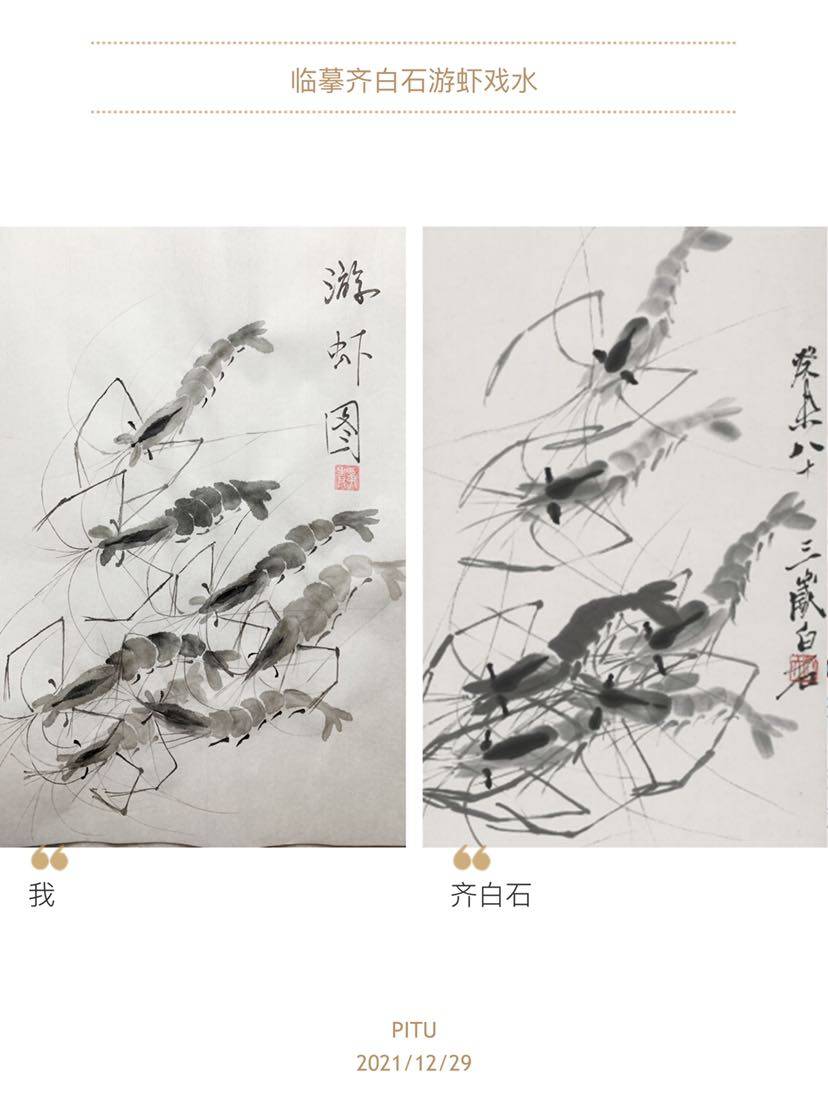 临摹齐白石游虾戏水
游虾图
癸未八十三岁白石
我
齐白石
PITU
2021/12/29